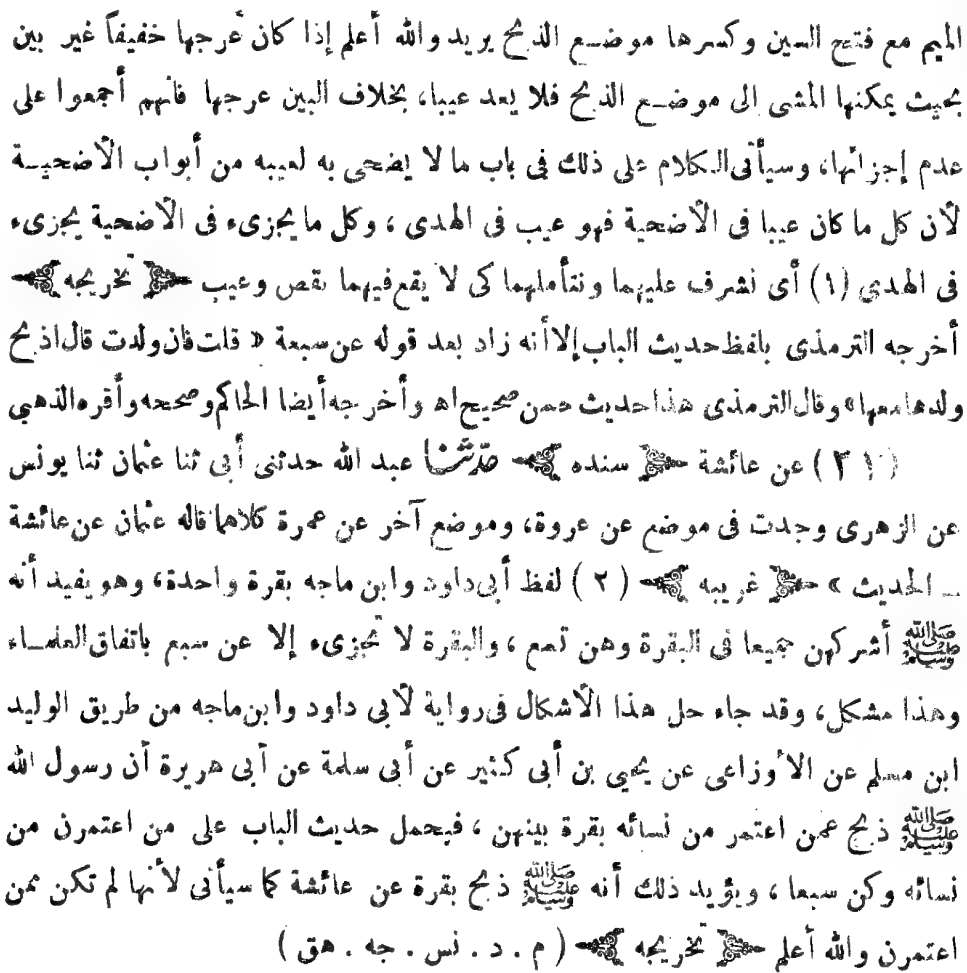 الميم مع فتح السين وكسرها موضع الذبح يريد والله أعلم إذا كان عرجها خفيفاً غير بين
بحيث يمكنها المشى الى موضع الذبح فلا يعد عيبا، بخلاف البين عرجها فانهم أجمعوا على
عدم إجزائها، وسيأتى الكلام على ذلك فى باب ما لا يضحى به لعيبه من أبواب الأضحية
لأن كل ما كان عيبا فى الأضحية فهو عيب فى الهدى ، وكل ما يجزىء فى الأضحية يجزىء
فى الهدى (١) أى نشرف عليهما ونتأملهما كى لا يقع فيهما نقص وعيب ﴿ تخريجه ﴾
أخرجه الترمذى بلفظ حديث الباب إلا أنه زاد بعد قوله عن سبعة « قلت فان ولدت قال اذبح
ولدها معها» وقال الترمذى هذا حديث حسن صحيح اهـ وأخرجه أيضا الحاكم وصححه وأقره الذهبى
(٢١) عن عائشة ﴿ سنده ﴾ حدثنا عبد الله حدثنى أبى ثنا عثمان ثنا يونس
عن الزهرى وجدت فى موضع عن عروة، وموضع آخر عن عمرة كلاهما قاله عثمان عن عائشة
ــ الحديث » ﴿ غريبه ﴾ (٢) لفظ أبى داود وابن ماجه بقرة واحدة، وهو يفيد أنه
ﷺ أشركهن جميعا فى البقرة وهن تسع ، والبقرة لا تجزىء إلا عن سبع باتفاق العلماء
وهذا مشكل، وقد جاء حل هذا الأشكال فى رواية لأبى داود وابن ماجه من طريق الوليد
ابن مسلم عن الأوزاعى عن يحيى بن أبى كثير عن أبى سلمة عن أبى هريرة أن رسول الله
ﷺ ذبح عمن اعتمر من نسائه بقرة بينهن ، فيحمل حديث الباب على من اعتمرن من
نسائه وكن سبعا ، ويؤيد ذلك أنه ﷺ ذبح بقرة عن عائشة كما سيأتى لأنها لم تكن ممن
اعتمرن والله أعلم ﴿ تخريجه ﴾ ( م . د . نس . جه . هق )